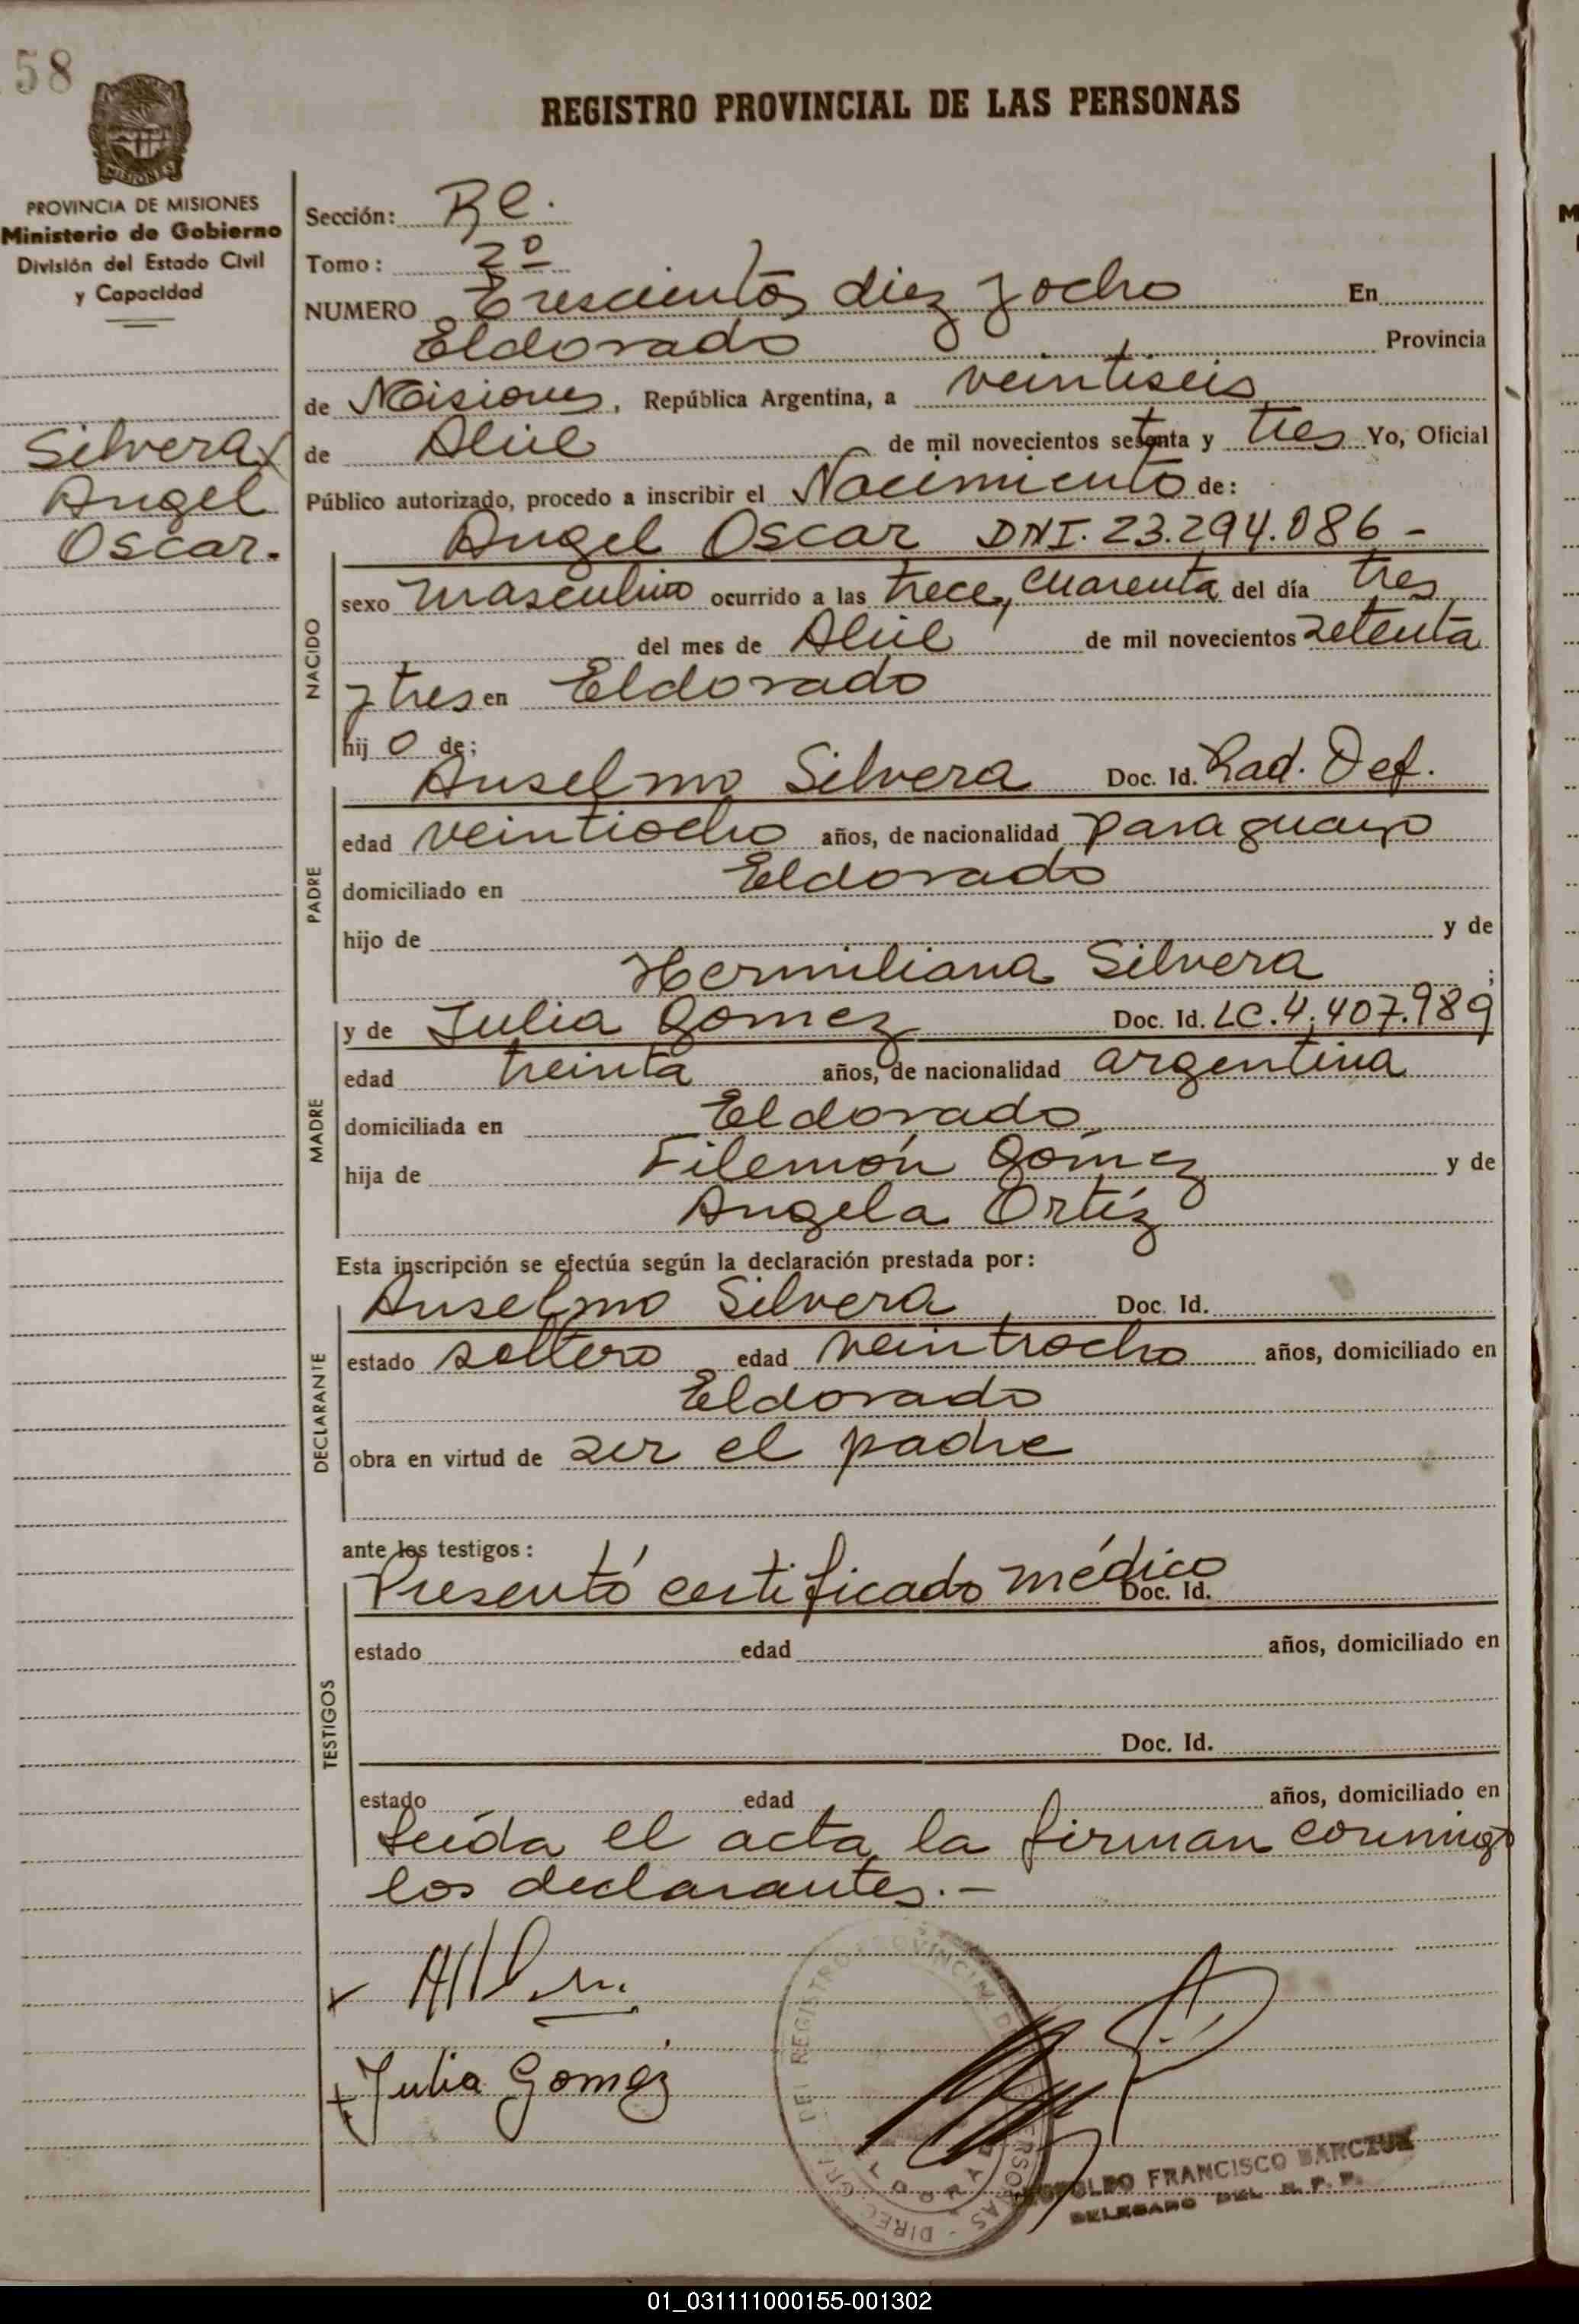 58
REGISTRO PROVINCIAL DE LAS PERSONAS
MISIONES
PROVINCIA DE MISIONES
Ministerio de Gobierno
División del Estado Civil
y Capacidad
Silvera
Angel
Oscar.
Sección:
Tomo: 2º
NUMERO Trescientos diez y ocho En
Eldorado Provincia
de Misiones, República Argentina, a veintiseis
de Abril de mil novecientos setenta y tres Yo, Oficial
Público autorizado, procedo a inscribir el Nacimiento de:
Angel Oscar DNI. 23.294.086 -
NACIDO
sexo masculino ocurrido a las trece, cuarenta del día tres
del mes de Abril de mil novecientos setenta
y tres en Eldorado
hij o de:
PADRE
Anselmo Silvera Doc. Id. Rad. Def.
edad veintiocho años, de nacionalidad paraguayo
domiciliado en Eldorado
hijo de y de
Hermiliana Silvera ;
MADRE
y de Julia Gomez Doc. Id. LC. 4.407.989
edad treinta años, de nacionalidad argentina
domiciliada en Eldorado
hija de Filemón Gómez y de
Angela Ortíz
Esta inscripción se efectúa según la declaración prestada por:
DECLARANTE
Anselmo Silvera Doc. Id.
estado soltero edad veintiocho años, domiciliado en
Eldorado
obra en virtud de ser el padre
ante los testigos:
TESTIGOS
Presentó certificado médico Doc. Id.
estado edad años, domiciliado en
Doc. Id.
estado edad años, domiciliado en
Leída el acta, la firman conmigo
los declarantes.-
Julia Gomez
REGISTRO PROVINCIAL DE LAS PERSONAS
ELDORADO
FRANCISCO BARCZUK
DELEGADO DEL R. P. P.
01_031111000155-001302